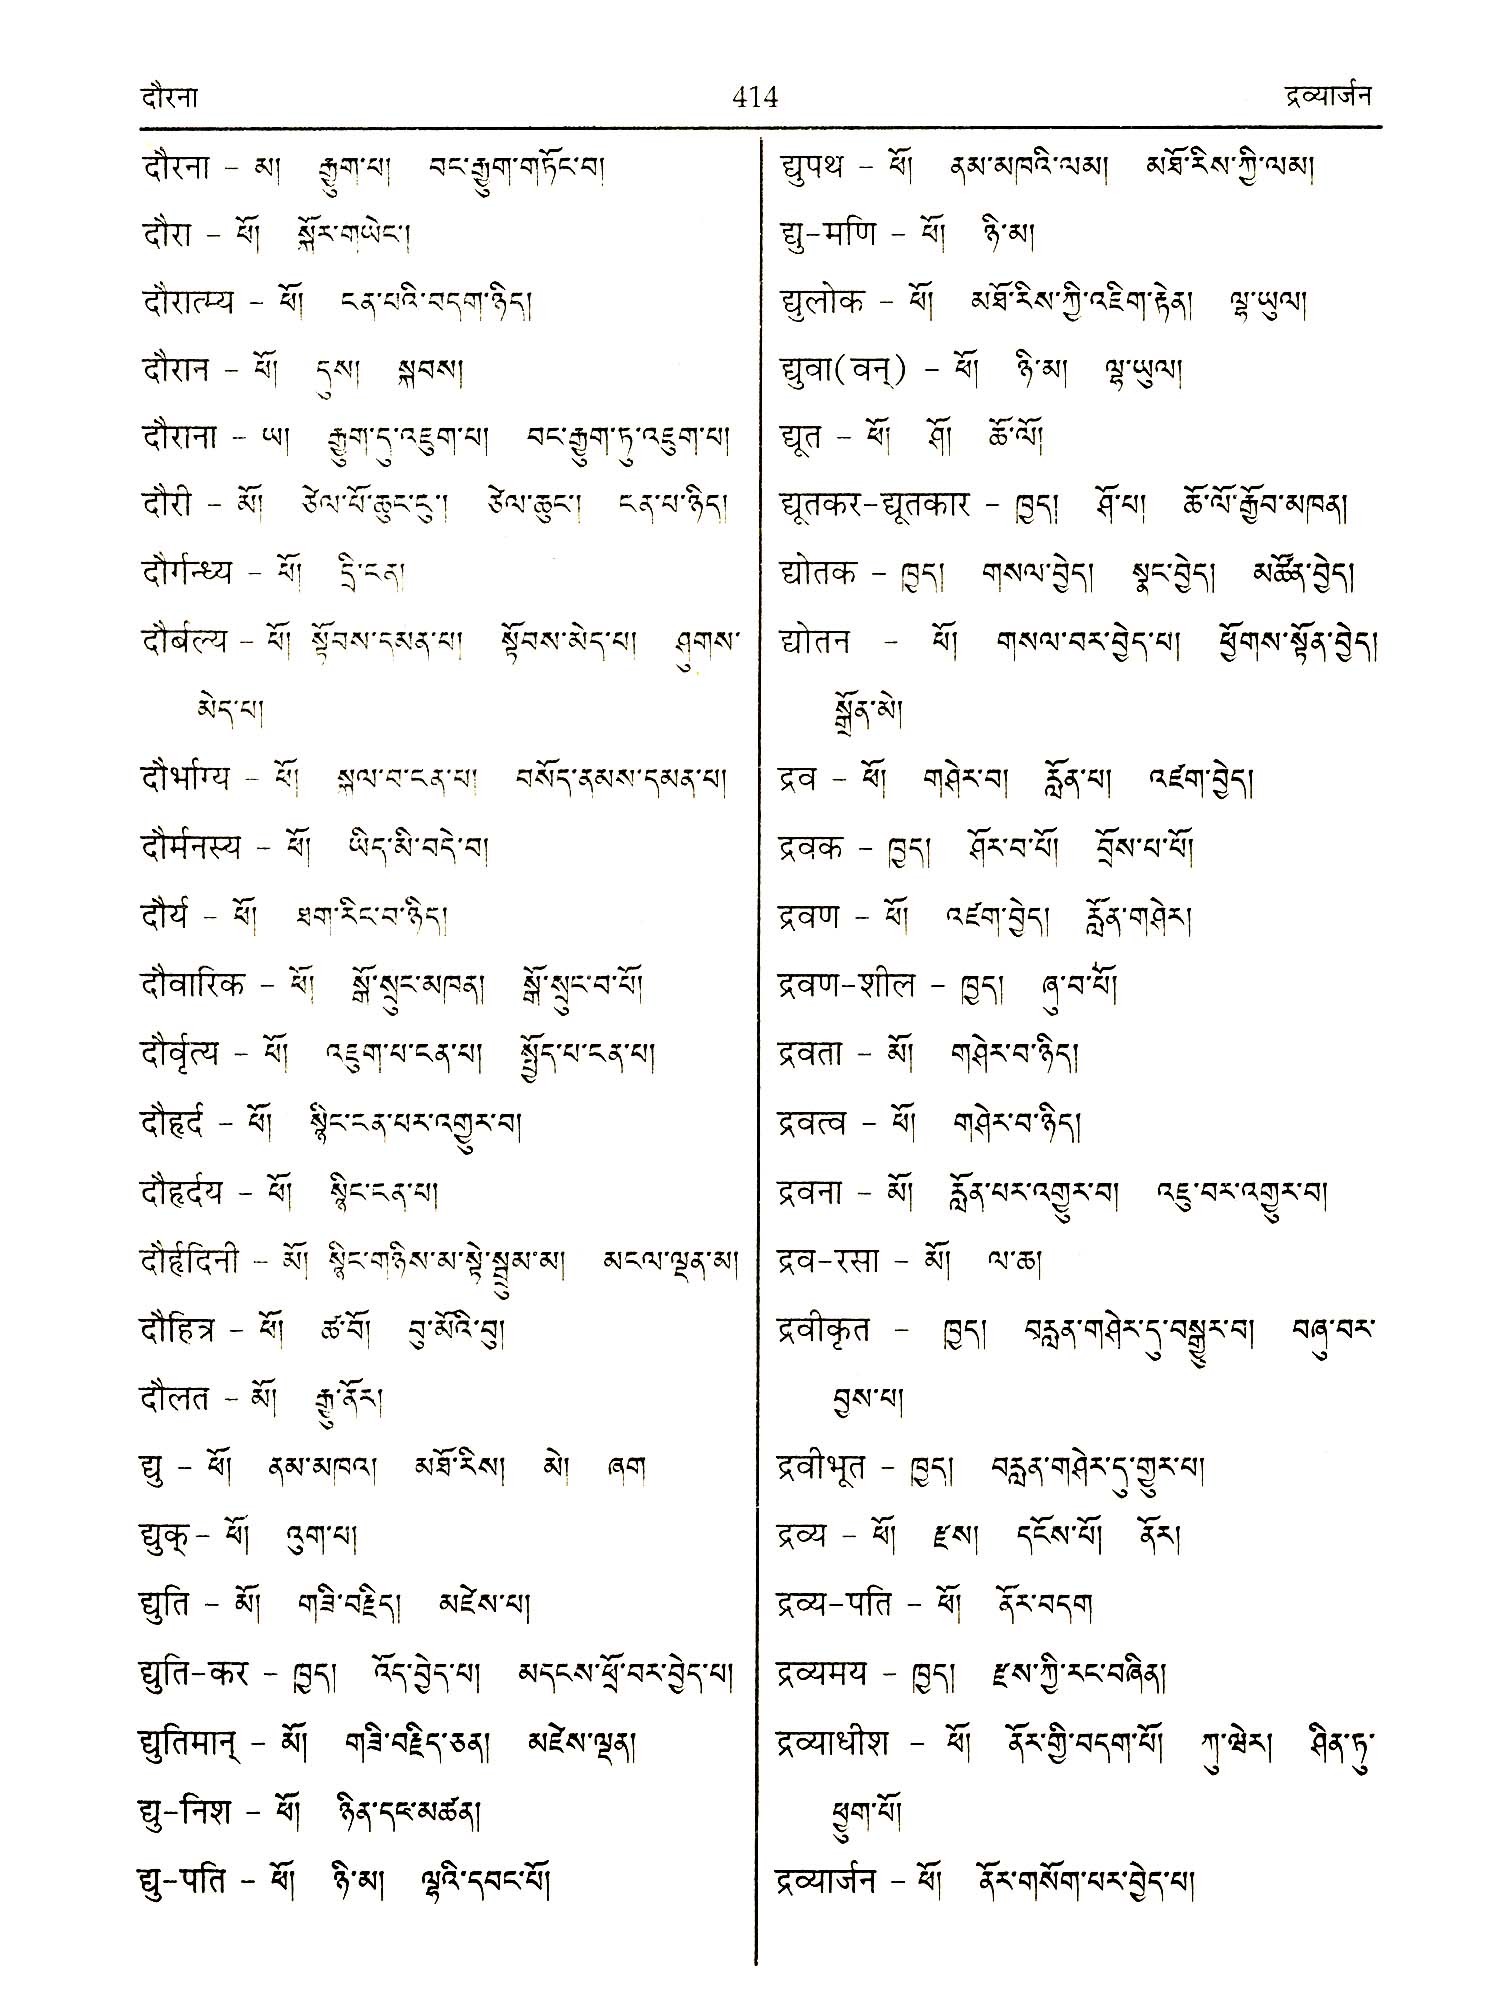 दौरना 414 द्रव्यार्जन
दौरना - མ། རྒྱུག་པ། བང་རྒྱུག་གཏོང་བ།
दौरा - ཕོ། སྐོར་གཡེང་།
दौरात्म्य - ཕོ། ངན་པའི་བདག་ཉིད།
दौरान - ཕོ། དུས། སྐབས།
दौराना - ཡ། རྒྱུག་ཏུ་འཇུག་པ། བང་རྒྱུག་ཏུ་འཇུག་པ།
दौरी - མོ། ཙེལ་པོ་ཆུང་ངུ་། ཙེལ་ཆུང་། ངན་པ་ཉིད།
दौर्गन्ध्य - ཕོ། དྲི་ངན།
दौर्बल्य - ཕོ། སྟོབས་དམན་པ། སྟོབས་མེད་པ། ཤུགས་
མེད་པ།
दौर्भाग्य - ཕོ། སྐལ་བ་ངན་པ། བསོད་ནམས་དམན་པ།
दौर्मनस्य - ཕོ། ཡིད་མི་བདེ་བ།
दौर्य - ཕོ། ཐག་རིང་བ་ཉིད།
दौवारिक - ཕོ། སྒོ་སྲུང་མཁན། སྒོ་སྲུང་བ་པོ།
दौर्वृत्य - ཕོ། འཇུག་པ་ངན་པ། སྤྱོད་པ་ངན་པ།
दौहृर्द - ཕོ། སྙིང་ངན་པར་འགྱུར་བ།
दौहृर्दय - ཕོ། སྙིང་ངན་པ།
दौर्हृदिनी - མོ། སྙིང་གཉིས་མ་སྟེ་སྦྲུམ་མ། མངལ་ལྡན་མ།
दौहित्र - ཕོ། ཚ་བོ། བུ་མོའི་བུ།
दौलत - མོ། རྒྱུ་ནོར།
द्यु - ཕོ། ནམ་མཁའ། མཐོ་རིས། མེ། ཞག
द्युक् - ཕོ། འུག་པ།
द्युति - མོ། གཟི་བརྗིད། མཛེས་པ།
द्युति-कर - ཁྱད། འོད་བྱེད་པ། མདངས་ཕྲོ་བར་བྱེད་པ།
द्युतिमान् - མོ། གཟི་བརྗིད་ཅན། མཛེས་ལྡན།
द्यु-निश - ཕོ། ཉིན་དང་མཚན།
द्यु-पति - ཕོ། ཉི་མ། ལྷའི་དབང་པོ།
द्युपथ - ཕོ། ནམ་མཁའི་ལམ། མཐོ་རིས་ཀྱི་ལམ།
द्यु-मणि - ཕོ། ཉི་མ།
द्युलोक - ཕོ། མཐོ་རིས་ཀྱི་འཇིག་རྟེན། ལྷ་ཡུལ།
द्युवा(वन्) - ཕོ། ཉི་མ། ལྷ་ཡུལ།
द्यूत - ཕོ། ཤོ། ཆོ་ལོ།
द्यूतकर-द्यूतकार - ཁྱད། ཤོ་པ། ཆོ་ལོ་རྒྱོབ་མཁན།
द्योतक - ཁྱད། གསལ་བྱེད། སྣང་བྱེད། མཚོན་བྱེད།
द्योतन - ཕོ། གསལ་བར་བྱེད་པ། ཕྱོགས་སྟོན་བྱེད།
སྒྲོན་མེ།
द्रव - ཕོ། གཤེར་བ། རློན་པ། འཛག་བྱེད།
द्रवक - ཁྱད། ཤོར་བ་པོ། བྲོས་པ་པོ།
द्रवण - ཕོ། འཛག་བྱེད། རློན་གཤེར།
द्रवण-शील - ཁྱད། ཞུ་བ་པོ།
द्रवता - མོ། གཤེར་བ་ཉིད།
द्रवत्व - ཕོ། གཤེར་བ་ཉིད།
द्रवना - མོ། རློན་པར་འགྱུར་བ། འཇུ་བར་འགྱུར་བ།
द्रव-रसा - མོ། ལ་ཆ།
द्रवीकृत - ཁྱད། བརླན་གཤེར་དུ་བསྒྱུར་བ། བཞུ་བར་
བྱས་པ།
द्रवीभूत - ཁྱད། བརླན་གཤེར་དུ་གྱུར་པ།
द्रव्य - ཕོ། རྫས། དངོས་པོ། ནོར།
द्रव्य-पति - ཕོ། ནོར་བདག
द्रव्यमय - ཁྱད། རྫས་ཀྱི་རང་བཞིན།
द्रव्याधीश - ཕོ། ནོར་གྱི་བདག་པོ། ཀུ་ཝེར། ཤིན་ཏུ་
ཕྱུག་པོ།
द्रव्यार्जन - ཕོ། ནོར་གསོག་པར་བྱེད་པ།